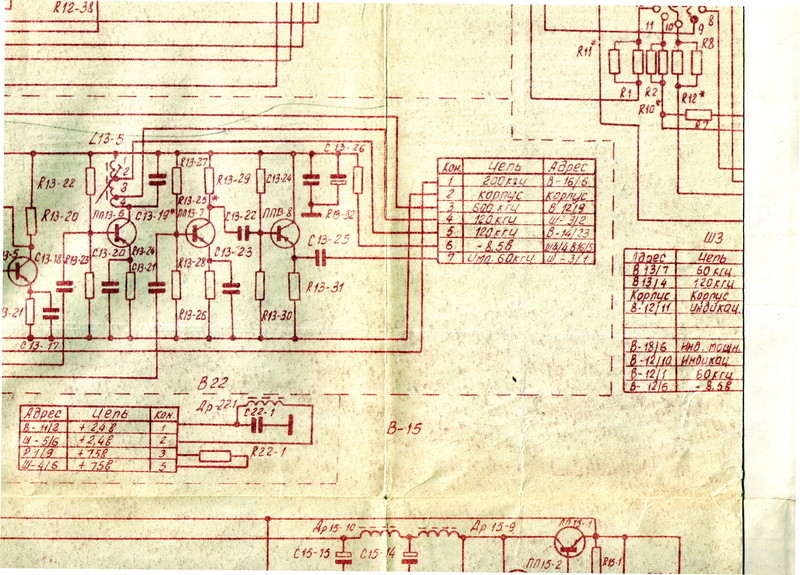 R12-38
11
10
9
8
R11*
R8
R1
R2
R12*
R10*
R7
L13-5
2
3
4
C13-26
R13-22
R13-27
R13-29
C13-24
R13-20
ПП13-6
C13-19*
R13-25*
ПП13-7
C13-22
ПП13-8
R13-32
C13-18
R13-23
C13-20
R13-24
C13-21
R13-28
C13-23
C13-25
R13-31
R13-26
R13-30
C13-17
Кон. Цепь Адрес
1 200кгц В-16/6
2 Корпус Корпус
3 600кгц В-12/9
4 120кгц Ш-3/2
5 120кгц В-14/23
6 -8,5в
7 Имп. 60кгц Ш-3/1
Ш3
Адрес Цепь
В13/7 60кгц
В13/4 120кгц
Корпус Корпус
В-12/11 Индикац.
В-18/6 Инд. мощн.
В-12/10 Индикац
В-12/1 60кгц
В-12/6 -8,5в
В22
Адрес Цепь Кон.
В-11/2 +2,4в 1
Ш-5/6 +2,4в 2
Р1/9 +75в 3
Ш-4/6 +75в 5
Др-22.1
C22-1
R22-1
В-15
Др15-10
Др15-9
ПП15-1
C15-15
C15-14
ПП15-2
R15-1